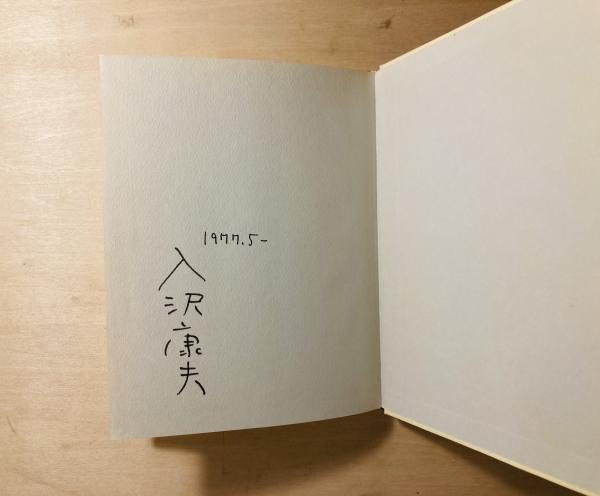 1977.5-
入沢康夫